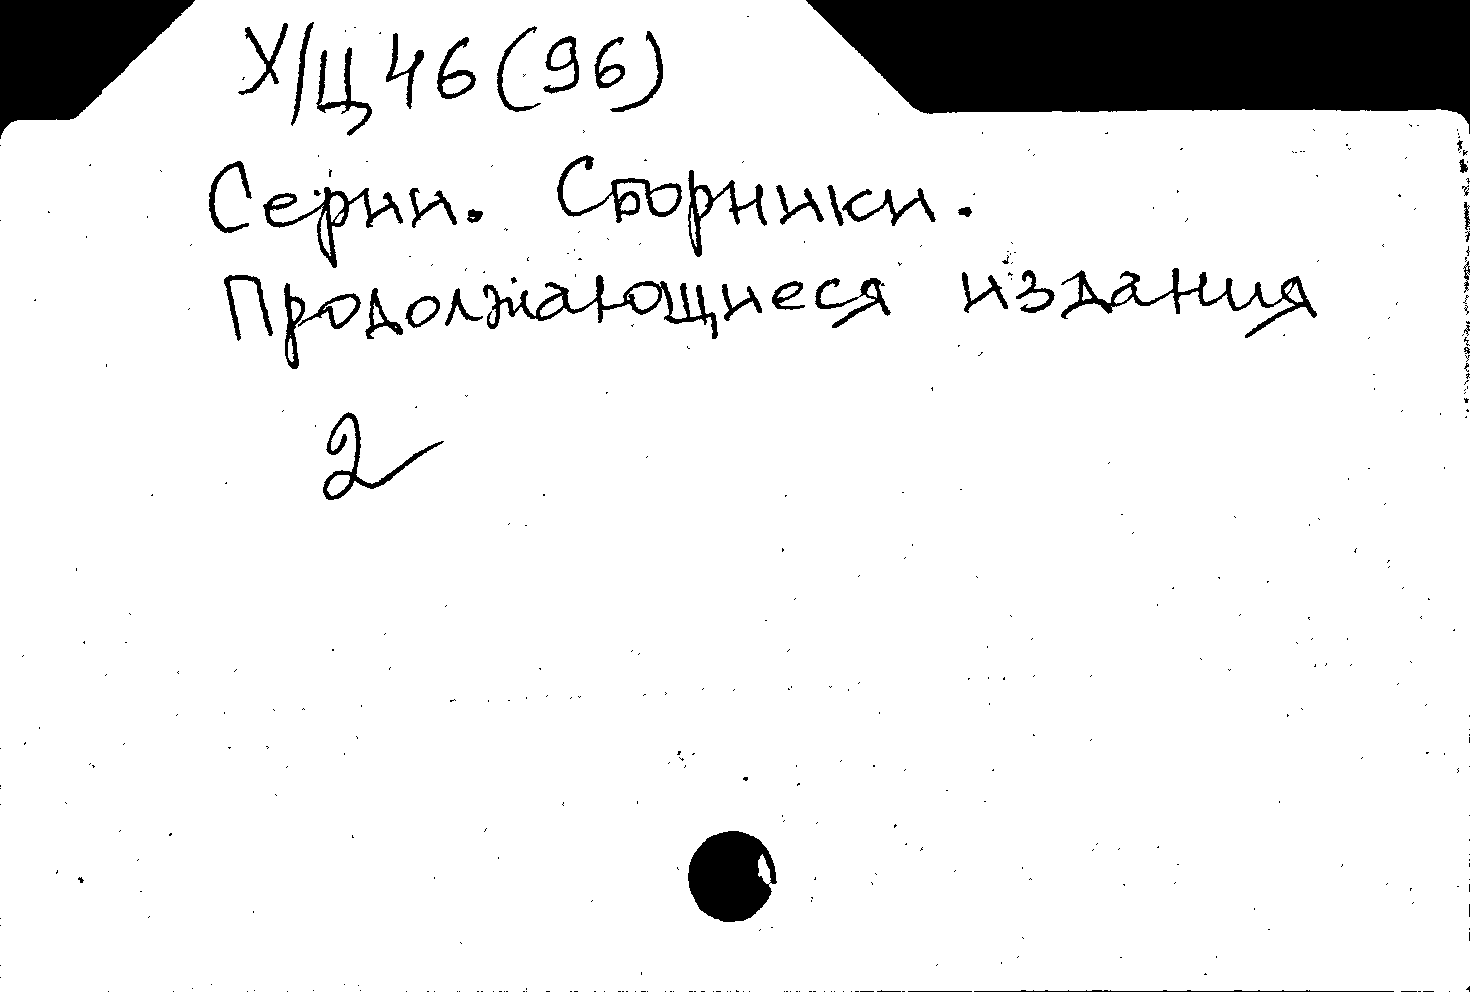 Х/Ц46(96)
Серии. Сборники.
Продолжающиеся издания
2